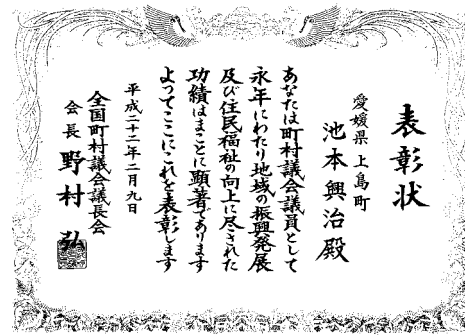 表彰状
愛媛県 上島町
池本興治殿
あなたは町村議会議員として
永年にわたり地域の振興発展
及び住民福祉の向上に尽された
功績はまことに顕著であります
よってここにこれを表彰します
平成二十二年二月九日
全国町村議会議長会
会長 野村弘